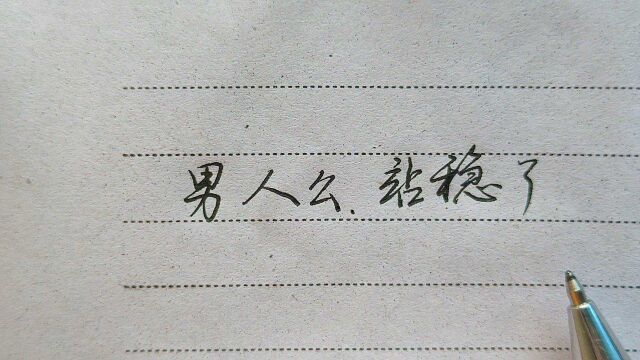 男人么、站稳了